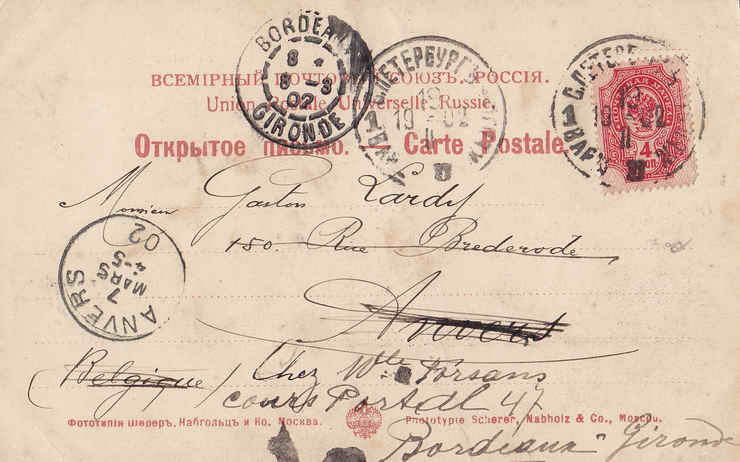 BORDEAUX
8
8 -3
02
GIRONDE
С.ПЕТЕРБУРГЪ
19
19 02
II
1
С.ПЕТЕРБ
19
02
II
1
4
ВСЕМІРНЫЙ ПОЧТОВЫЙ СОЮЗЪ. РОССІЯ.
Union Postale Universelle Russie.
Открытое письмо. Carte Postale.
Monsieur Gaston Lardy
150. Rue Brederode
Anvers
Belgique
ANVERS
7
MARS
4-5
02
Chez
Forsans
cours Portal 47
Bordeaux - Gironde
Фототипія Шереръ, Набгольцъ и Ко. Москва.
Phototypie Scherer, Nabholz & Co., Moscou.